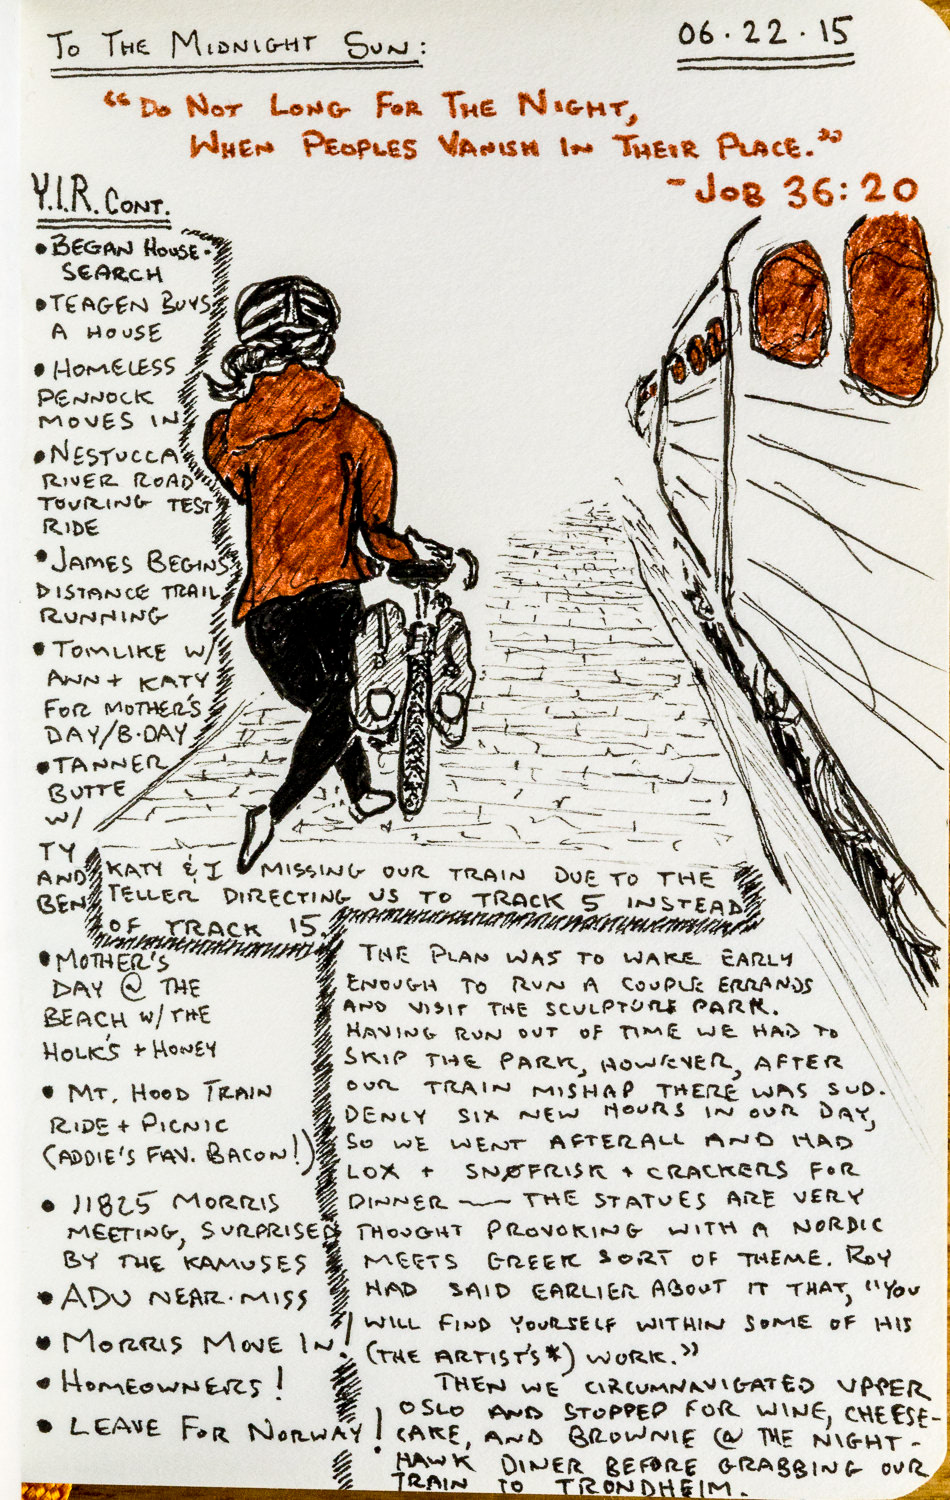 To The Midnight Sun:
06.22.15
"Do Not Long For The Night,
When Peoples Vanish In Their Place."
- Job 36:20
Y.I.R. Cont.
• Began House-
Search
• Teagen Buys
A House
• Homeless
Pennock
Moves In
• Nestucca
River Road
Touring Test
Ride
• James Begins
Distance Trail
Running
• Tomlike w/
Ann + Katy
For Mother's
Day/B-Day
• Tanner
Butte
w/
Ty
And
Ben
• Mother's
Day @ The
Beach w/ The
Holk's + Honey
• Mt. Hood Train
Ride + Picnic
(Addie's Fav. Bacon!)
• 11825 Morris
Meeting, Surprised
By The Kamuses
• ADU Near-Miss
• Morris Move In!
• Homeowners!
• Leave For Norway!
Katy & I missing our train due to the
teller directing us to track 5 instead
of track 15.
The plan was to wake early
enough to run a couple errands
and visit the sculpture park.
Having run out of time we had to
skip the park, however, after
our train mishap there was sud-
denly six new hours in our day,
so we went afterall and had
lox + snøfrisk + crackers for
dinner — The statues are very
thought provoking with a Nordic
meets Greek sort of theme. Roy
had said earlier about it that, "You
will find yourself within some of his
(the artist's*) work."
Then we circumnavigated upper
Oslo and stopped for wine, cheese-
cake, and brownie @ the Night-
hawk Diner before grabbing our
train to Trondheim.